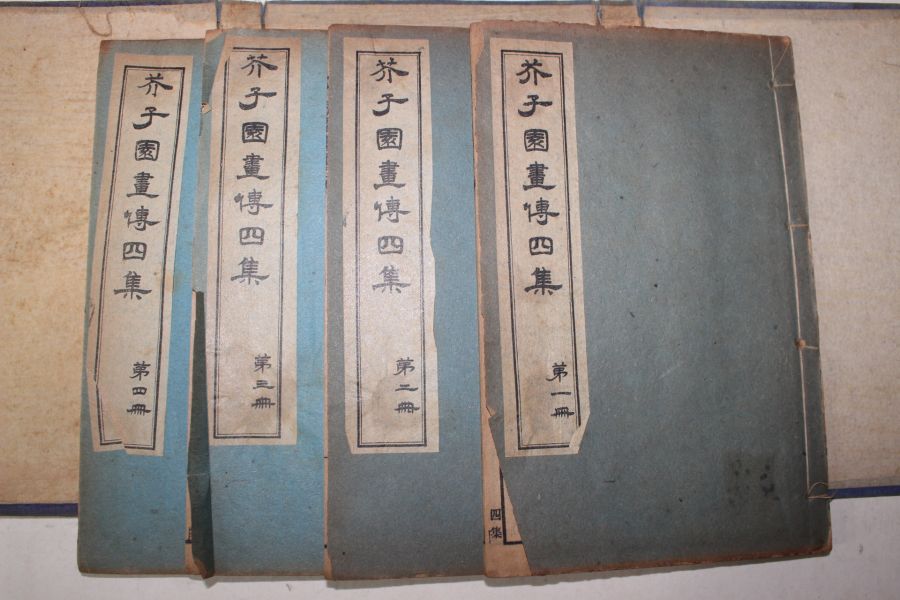 芥子園畫傳四集
第一冊
芥子園畫傳四集
第二冊
芥子園畫傳四集
第三冊
芥子園畫傳四集
第四冊
四集